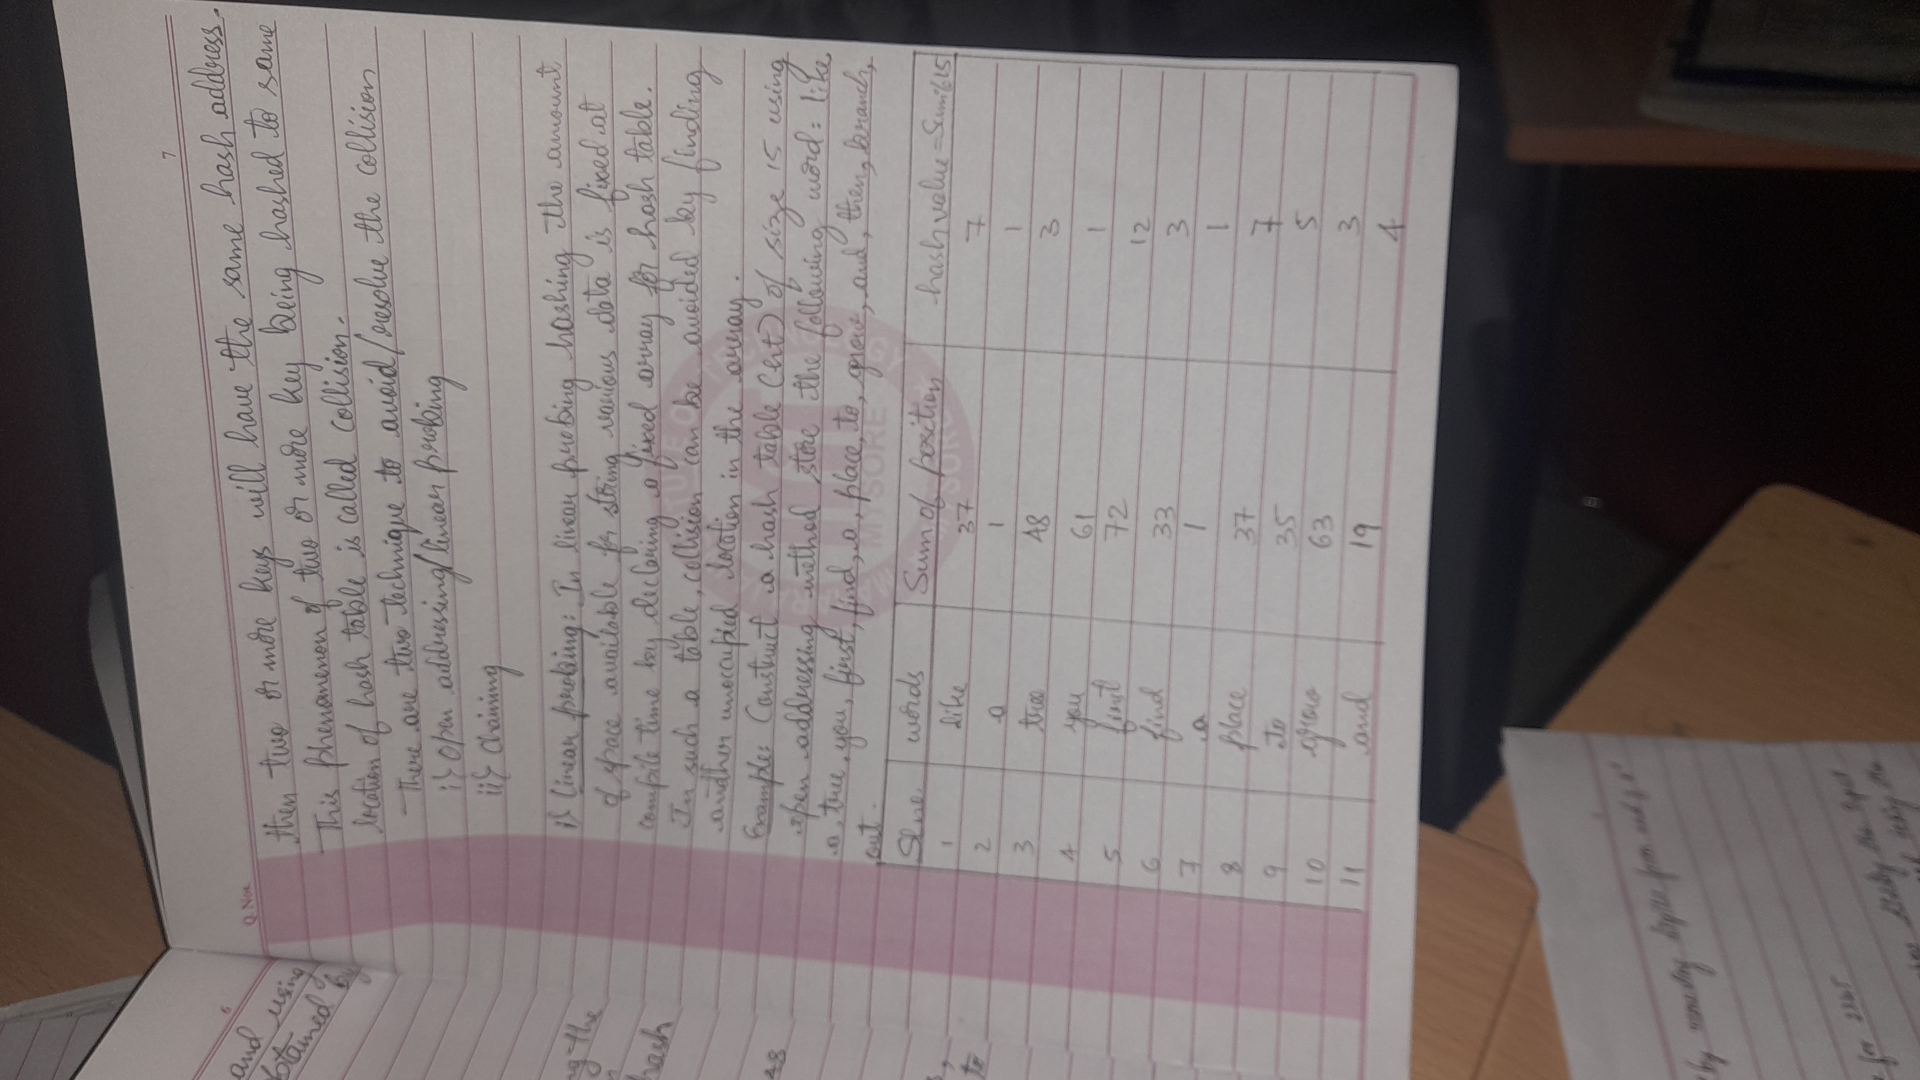 7
Q.No.
then two or more keys will have the same hash address.
This phenomenon of two or more key being hashed to same
location of hash table is called collision.
There are two technique to avoid/resolve the collision
i) Open addressing/linear probing
ii) Chaining
i) Linear probing: In linear probing hashing the amount
of space available for string various data is fixed at
compile time by declaring a fixed array for hash table.
In such a table, collision can be avoided by finding
another unoccupied location in the array.
Example: Construct a hash table (ht) of size 15 using
open addressing method store the following word: like
a, tree, you, first, find, a, place, to, grow, and, then, branch,
out.
Slno. words Sum of position hash value = Sum%15
1 like 37 7
2 a 1 1
3 tree 48 3
4 you 61 1
5 first 72 12
6 find 33 3
7 a 1 1
8 place 37 7
9 to 35 5
10 grow 63 3
11 and 19 4
6
and using
obtained by
hash
48
to
MYSORE